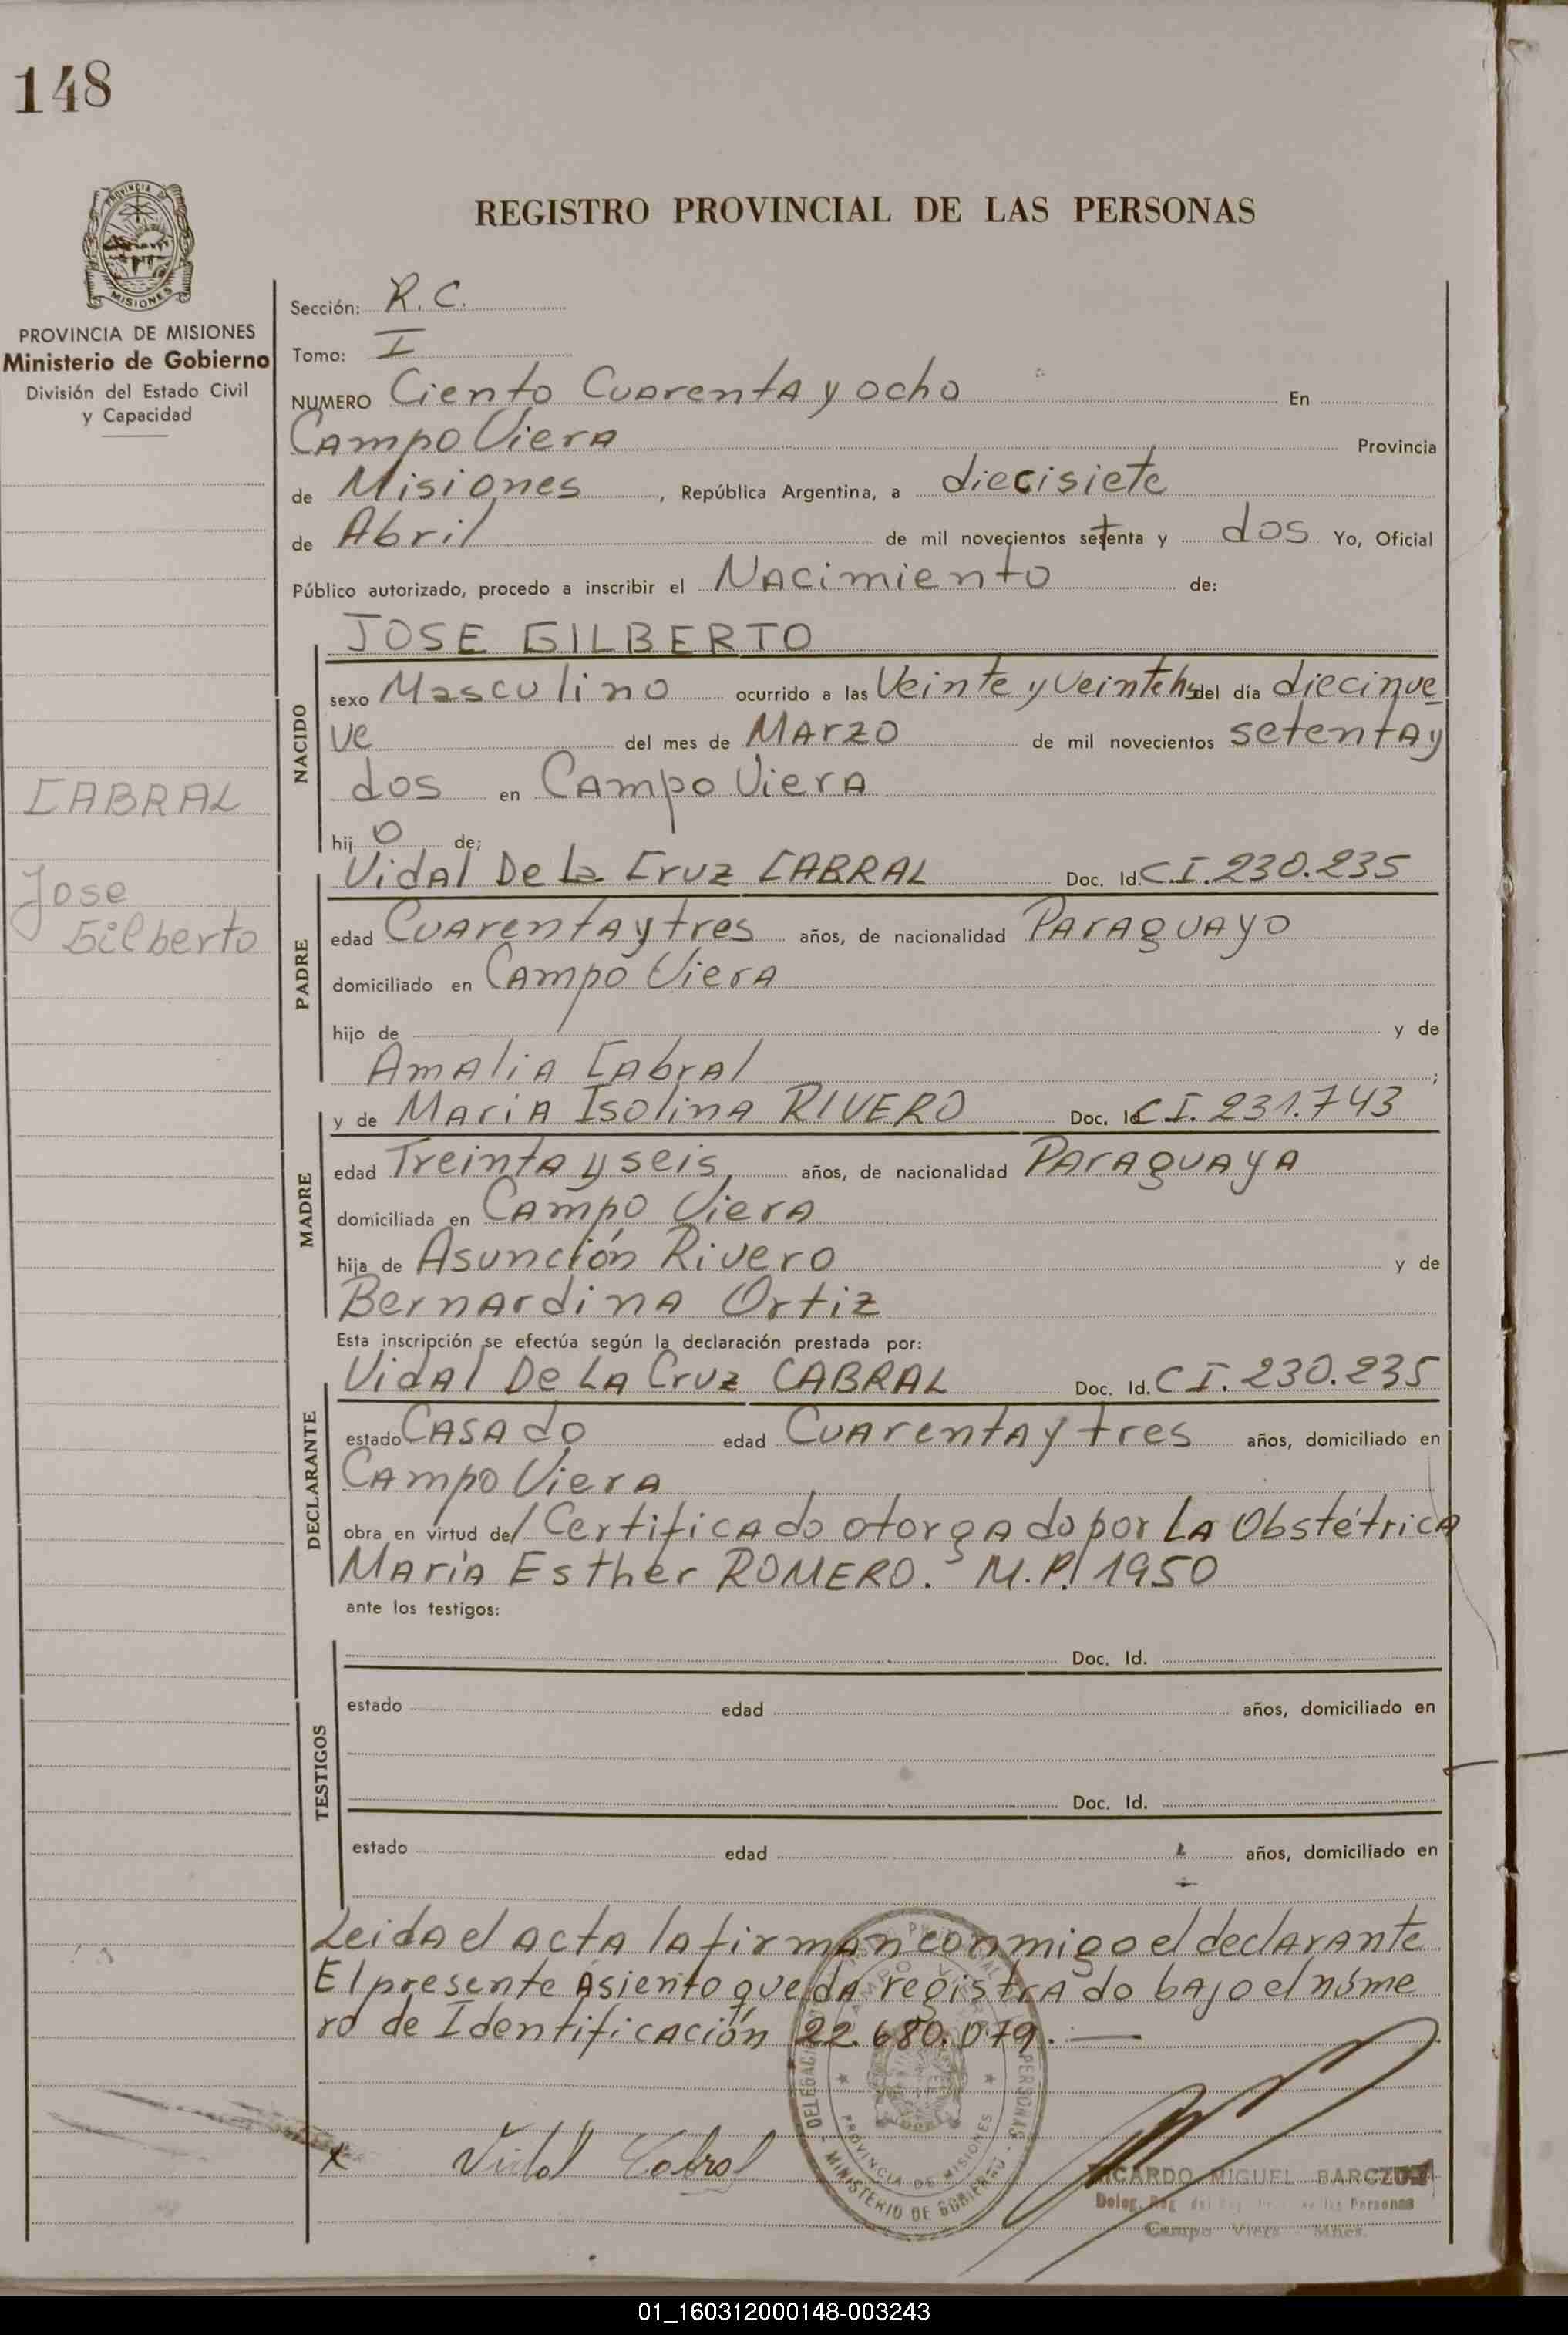 148
PROVINCIA DE
MISIONES
PROVINCIA DE MISIONES
Ministerio de Gobierno
División del Estado Civil
y Capacidad
CABRAL
Jose
Gilberto
REGISTRO PROVINCIAL DE LAS PERSONAS
Sección: R.C.
Tomo: I
NUMERO Ciento Cuarenta y ocho En
Campo Viera Provincia
de Misiones, República Argentina, a diecisiete
de Abril de mil novecientos setenta y dos Yo, Oficial
Público autorizado, procedo a inscribir el Nacimiento de:
NACIDO
JOSE GILBERTO
sexo Masculino ocurrido a las Veinte y Veinte hs del día diecinue
ve del mes de Marzo de mil novecientos setenta y
dos en Campo Viera
hijo de;
PADRE
Vidal De la Cruz CABRAL Doc. Id. C.I. 230.235
edad Cuarenta y tres años, de nacionalidad Paraguayo
domiciliado en Campo Viera
hijo de y de
Amalia Cabral ;
MADRE
y de Maria Isolina RIVERO Doc. Id C I. 231.743
edad Treinta y seis años, de nacionalidad Paraguaya
domiciliada en Campo Viera
hija de Asunción Rivero y de
Bernardina Ortiz
Esta inscripción se efectúa según la declaración prestada por:
DECLARANTE
Vidal De La Cruz CABRAL Doc. Id. C I. 230.235
estado Casado edad Cuarenta y tres años, domiciliado en
Campo Viera
obra en virtud de/ Certificado otorgado por La Obstétrica
María Esther ROMERO. M.P. 1950
ante los testigos:
TESTIGOS
Doc. Id.
estado edad años, domiciliado en
Doc. Id.
estado edad años, domiciliado en
Leida el acta la firman conmigo el declarante
El presente Asiento queda registrado bajo el núme
ro de Identificación 22.680.079.
x Vidal Cabral
PROVINCIA DE MISIONES
MINISTERIO DE GOBIERNO
RICARDO MIGUEL
Campo Viera - Mnes.
01_160312000148-003243